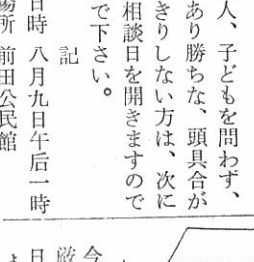 人、子どもを問わず、
あり勝ちな、頭具合が
きりしない方は、次に
相談日を開きますので
で下さい。
記
日時 八月九日午后一時
場所 前田公民館
今
厳
日